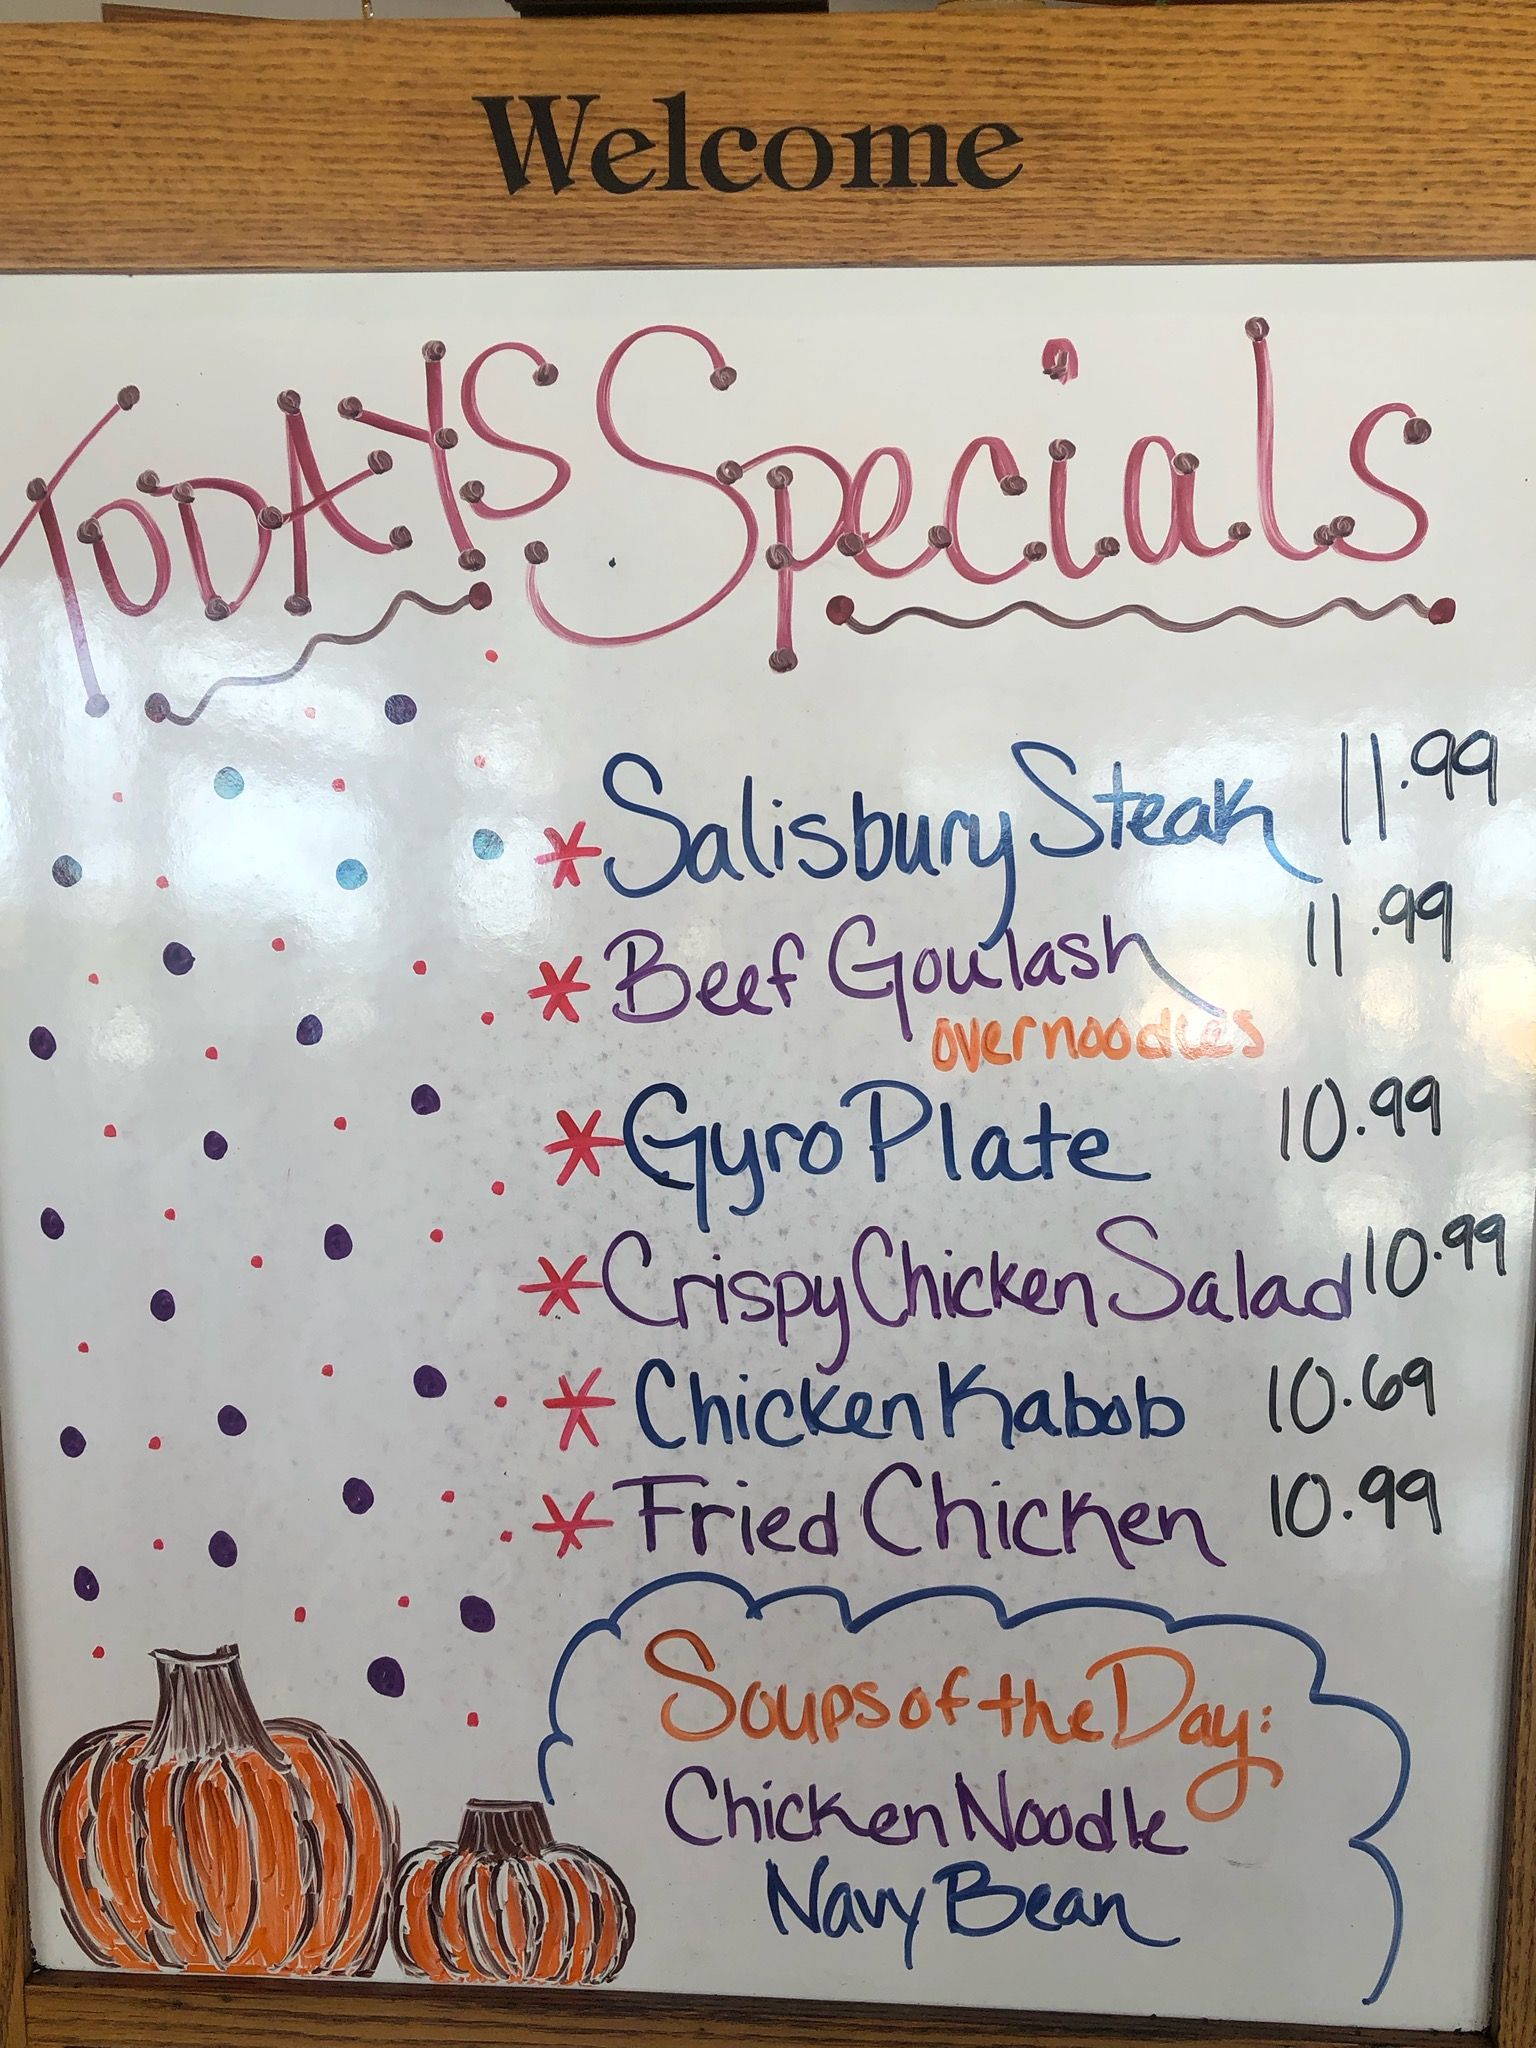 Welcome
TODAYS Specials
* Salisbury Steak 11.99
* Beef Goulash 11.99
over noodles
* Gyro Plate 10.99
* Crispy Chicken Salad 10.99
* Chicken Kabob 10.69
* Fried Chicken 10.99
Soups of the Day:
Chicken Noodle
Navy Bean